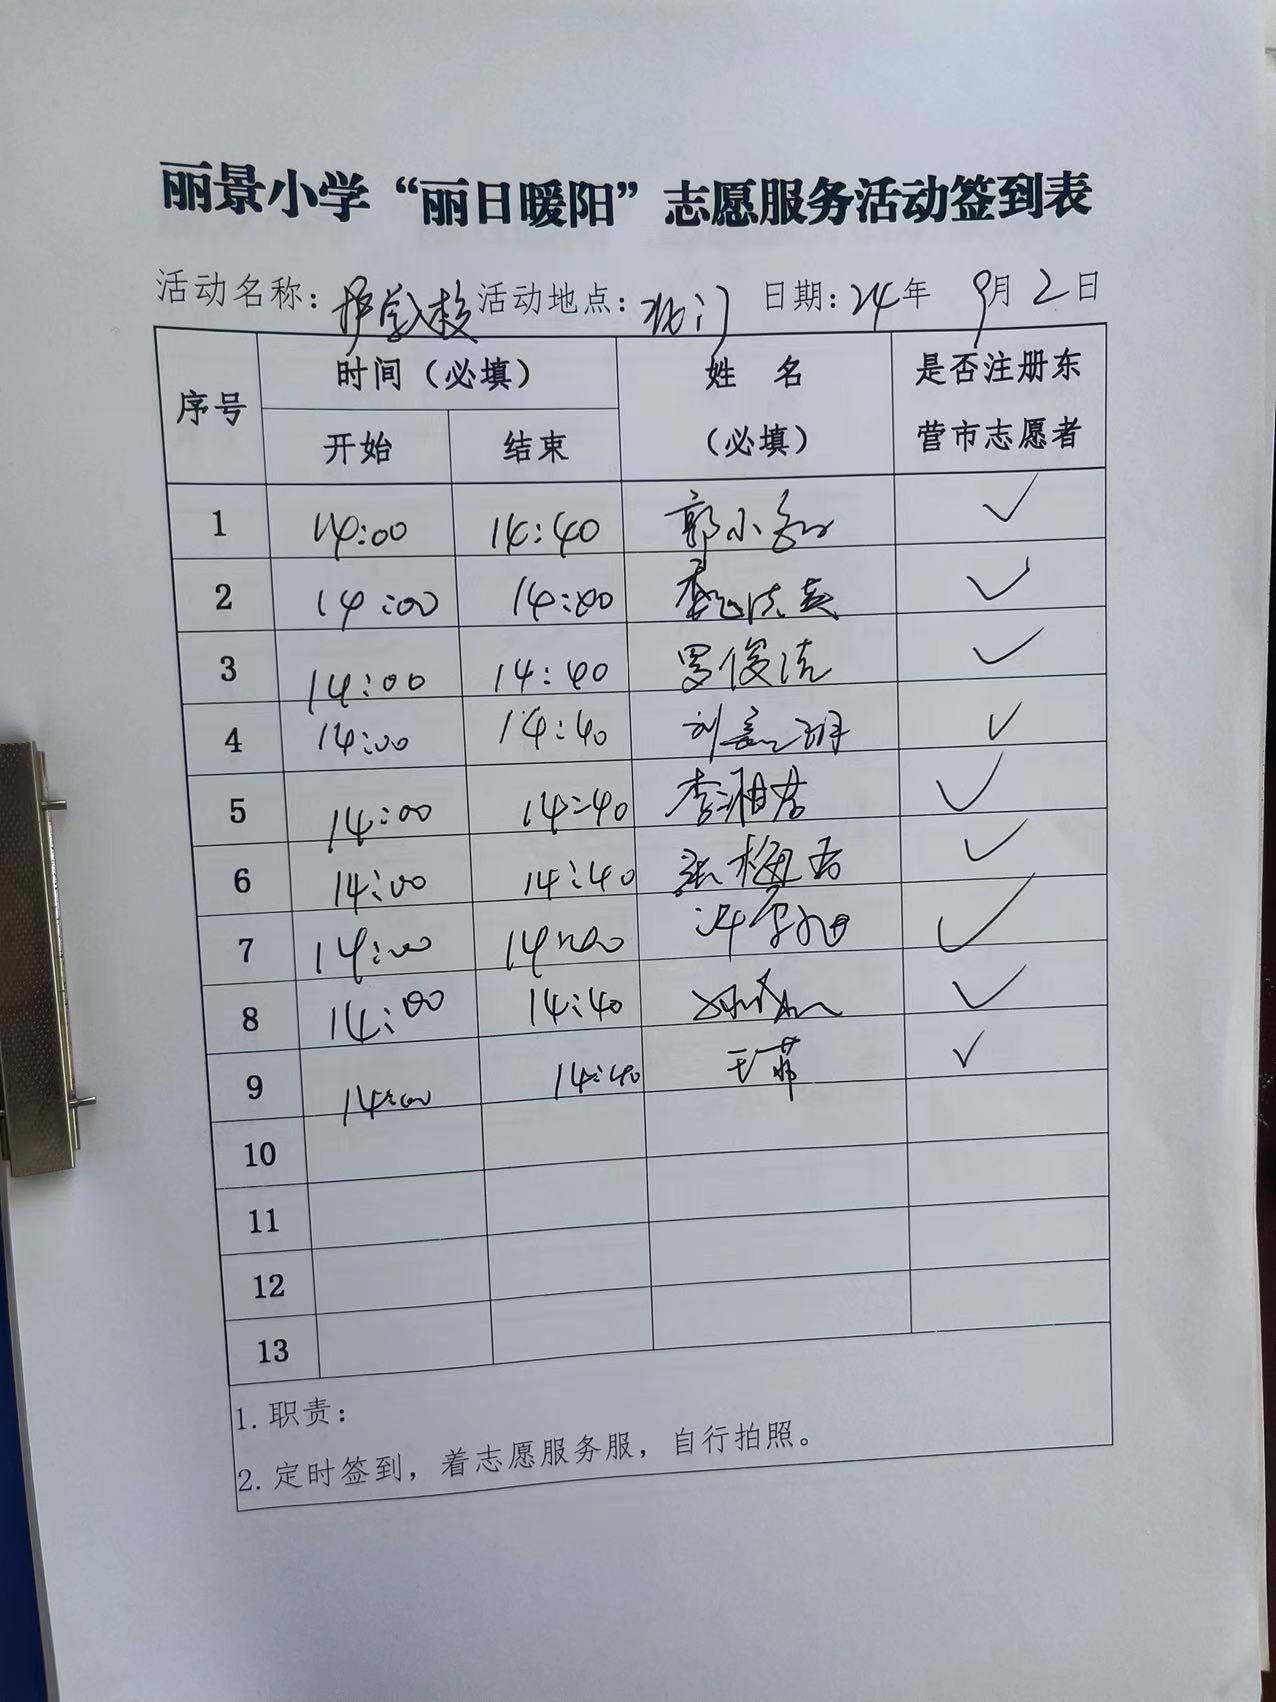 丽景小学“丽日暖阳”志愿服务活动签到表
活动名称：护学入校 活动地点：北门 日期：24年 9月2日
序号 时间（必填） 姓 名（必填） 是否注册东营市志愿者
开始 结束
1 14:00 14:40 郭小 ✓
2 14:00 14:40 ✓
3 14:00 14:40 罗俊洁 ✓
4 14:00 14:40 刘 ✓
5 14:00 14:40 李湘君 ✓
6 14:00 14:40 张梅 ✓
7 14:00 14:40 ✓
8 14:00 14:40 ✓
9 14:00 14:40 王菲 ✓
10
11
12
13
1. 职责：
2. 定时签到，着志愿服务服，自行拍照。